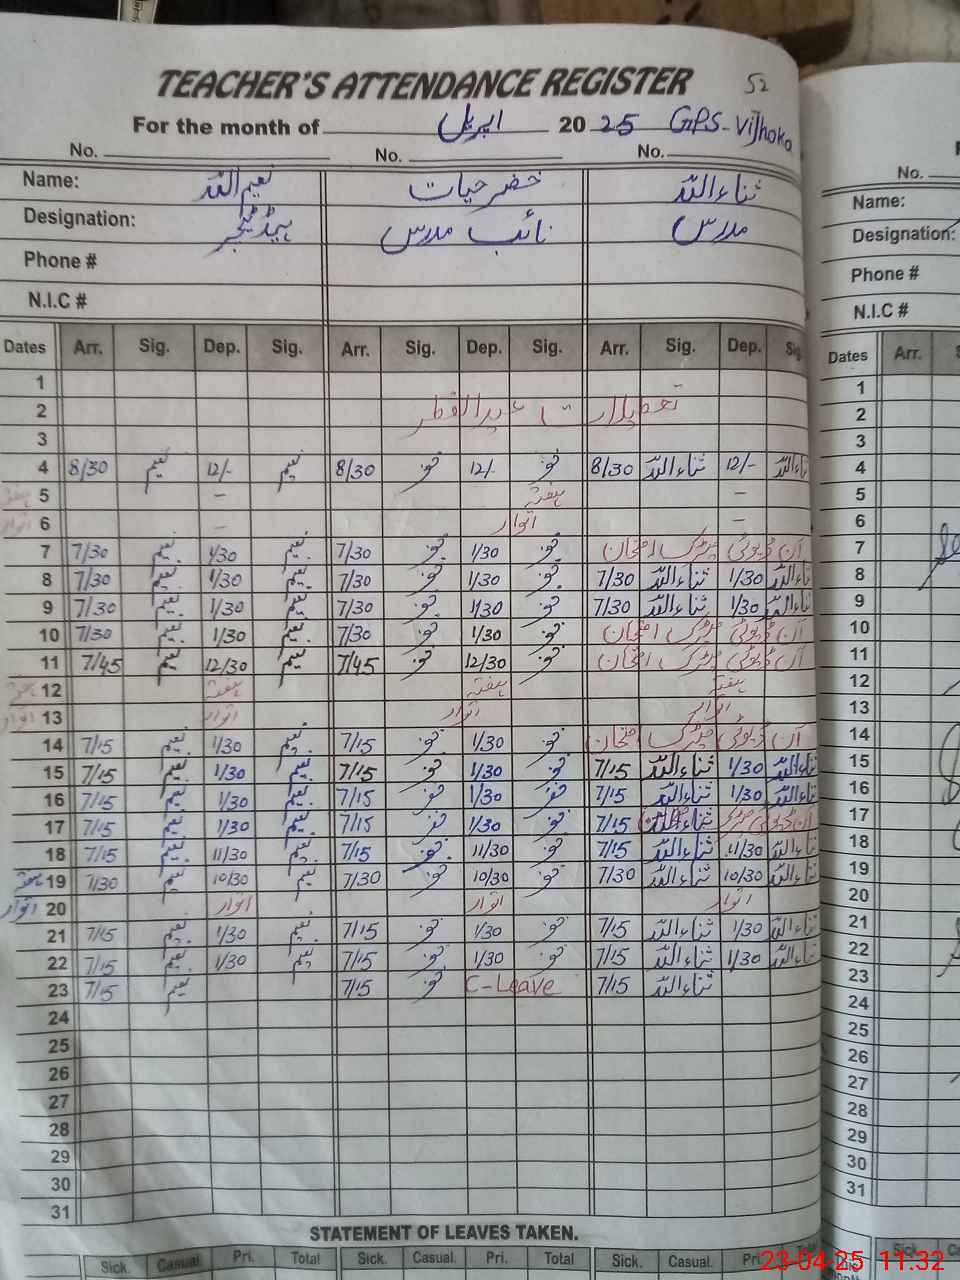 TEACHER'S ATTENDANCE REGISTER 52
For the month of اپریل 2025 GPS-Vijhoka
No. No. No. No.
Name: نعیم اللہ خضر حیات ثناء اللہ Name:
Designation: ہیڈ ٹیچر نائب مدرس مدرس Designation:
Phone # Phone #
N.I.C # N.I.C #
Dates Arr. Sig. Dep. Sig. Arr. Sig. Dep. Sig. Arr. Sig. Dep. Sig. Dates Arr.
1 1
2 تعطیلات عیدالفطر 2
3 3
4 8/30 نعیم 12/- نعیم 8/30 12/- 8/30 ثناءاللہ 12/- ثناءاللہ 4
ہفتہ 5 - ہفتہ - 5
اتوار 6 - اتوار - 6
7 7/30 نعیم 1/30 نعیم 7/30 1/30 آن ڈیوٹی میٹرک امتحان 7
8 7/30 نعیم 1/30 نعیم 7/30 1/30 7/30 ثناءاللہ 1/30 ثناءاللہ 8
9 7/30 نعیم 1/30 نعیم 7/30 1/30 7/30 ثناءاللہ 1/30 ثناءاللہ 9
10 7/30 نعیم 1/30 نعیم 7/30 1/30 آن ڈیوٹی میٹرک امتحان 10
11 7/45 نعیم 12/30 نعیم 7/45 12/30 آن ڈیوٹی میٹرک امتحان 11
ہفتہ 12 ہفتہ ہفتہ ہفتہ 12
اتوار 13 اتوار اتوار اتوار 13
14 7/15 نعیم 1/30 نعیم 7/15 1/30 آن ڈیوٹی میٹرک امتحان 14
15 7/15 نعیم 1/30 نعیم 7/15 1/30 7/15 ثناءاللہ 1/30 ثناءاللہ 15
16 7/15 نعیم 1/30 نعیم 7/15 1/30 7/15 ثناءاللہ 1/30 ثناءاللہ 16
17 7/15 نعیم 1/30 نعیم 7/15 1/30 7/15 ثناءاللہ آن ڈیوٹی میٹرک 17
18 7/15 نعیم 11/30 نعیم 7/15 11/30 7/15 ثناءاللہ 11/30 ثناءاللہ 18
ہفتہ 19 7/30 نعیم 10/30 نعیم 7/30 10/30 7/30 ثناءاللہ 10/30 ثناءاللہ 19
اتوار 20 اتوار اتوار اتوار 20
21 7/15 نعیم 1/30 نعیم 7/15 1/30 7/15 ثناءاللہ 1/30 ثناءاللہ 21
22 7/15 نعیم 1/30 نعیم 7/15 1/30 7/15 ثناءاللہ 1/30 ثناءاللہ 22
23 7/15 نعیم 7/15 C-Leave 7/15 ثناءاللہ 23
24 24
25 25
26 26
27 27
28 28
29 29
30 30
31 31
STATEMENT OF LEAVES TAKEN.
Sick. Casual. Pri. Total Sick. Casual. Pri. Total Sick. Casual. Pri. Sick.
23-04-25 11:32